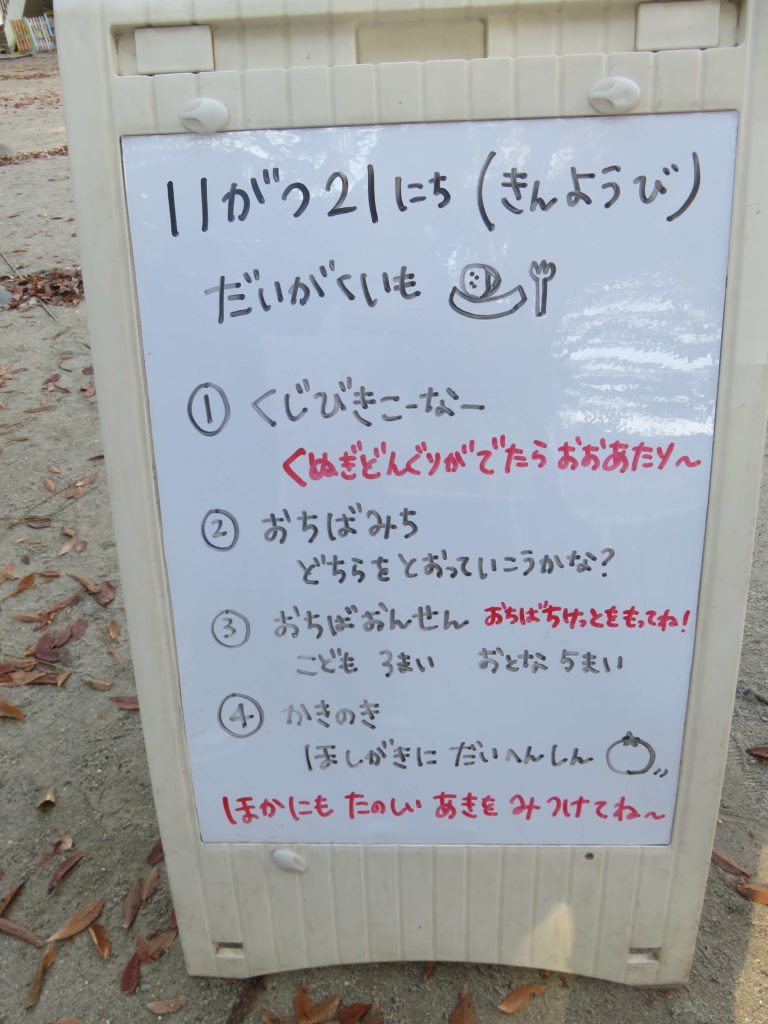 11がつ21にち(きんようび)
だいがくいも
① くじびきこーなー
くぬぎどんぐりがでたら おおあたり〜
② おちばみち
どちらをとおっていこうかな?
③ おちばおんせん おちばちけっとをもってね!
こども 3まい おとな 5まい
④ かきのき
ほしがきに だいへんしん
ほかにも たのしい あきを みつけてね〜